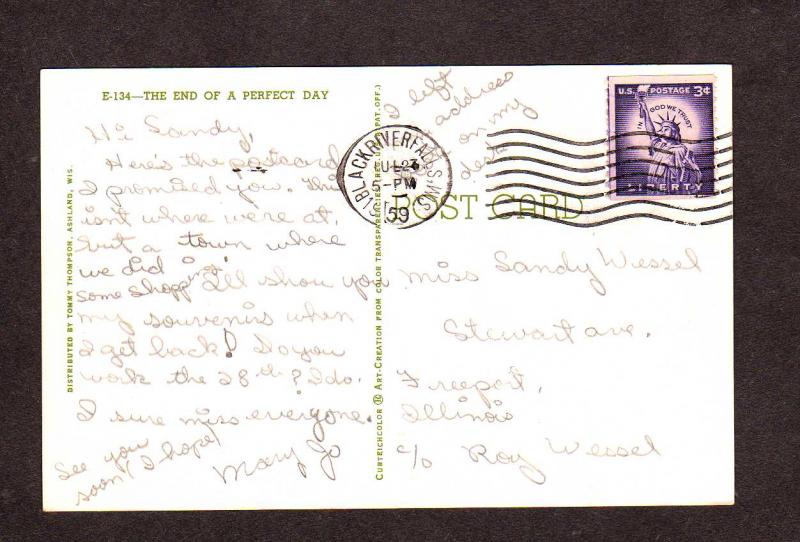 E-134—THE END OF A PERFECT DAY
Hi Sandy,
Here's the postcard
I promised you. This
isn't where we're at,
but a town where
we did
some shopping. I'll show you
my souvenirs when
I get back! Do you
work the 28th? I do.
I sure miss everyone.
See you
soon! I hope!
Mary Jo
DISTRIBUTED BY TOMMY THOMPSON, ASHLAND, WIS.
CURTEICHCOLOR ® ART-CREATION FROM COLOR TRANSPARENCIES (REG. U.S.A. PAT. OFF.)
I left
address
on my
desk
BLACK RIVER FALLS WIS.
JUL 23
PM
1959
U.S. POSTAGE 3¢
IN GOD WE TRUST
LIBERTY
POST CARD
Miss Sandy Wessel
Stewart ave.
Freeport,
Illinois
c/o Roy Wessel